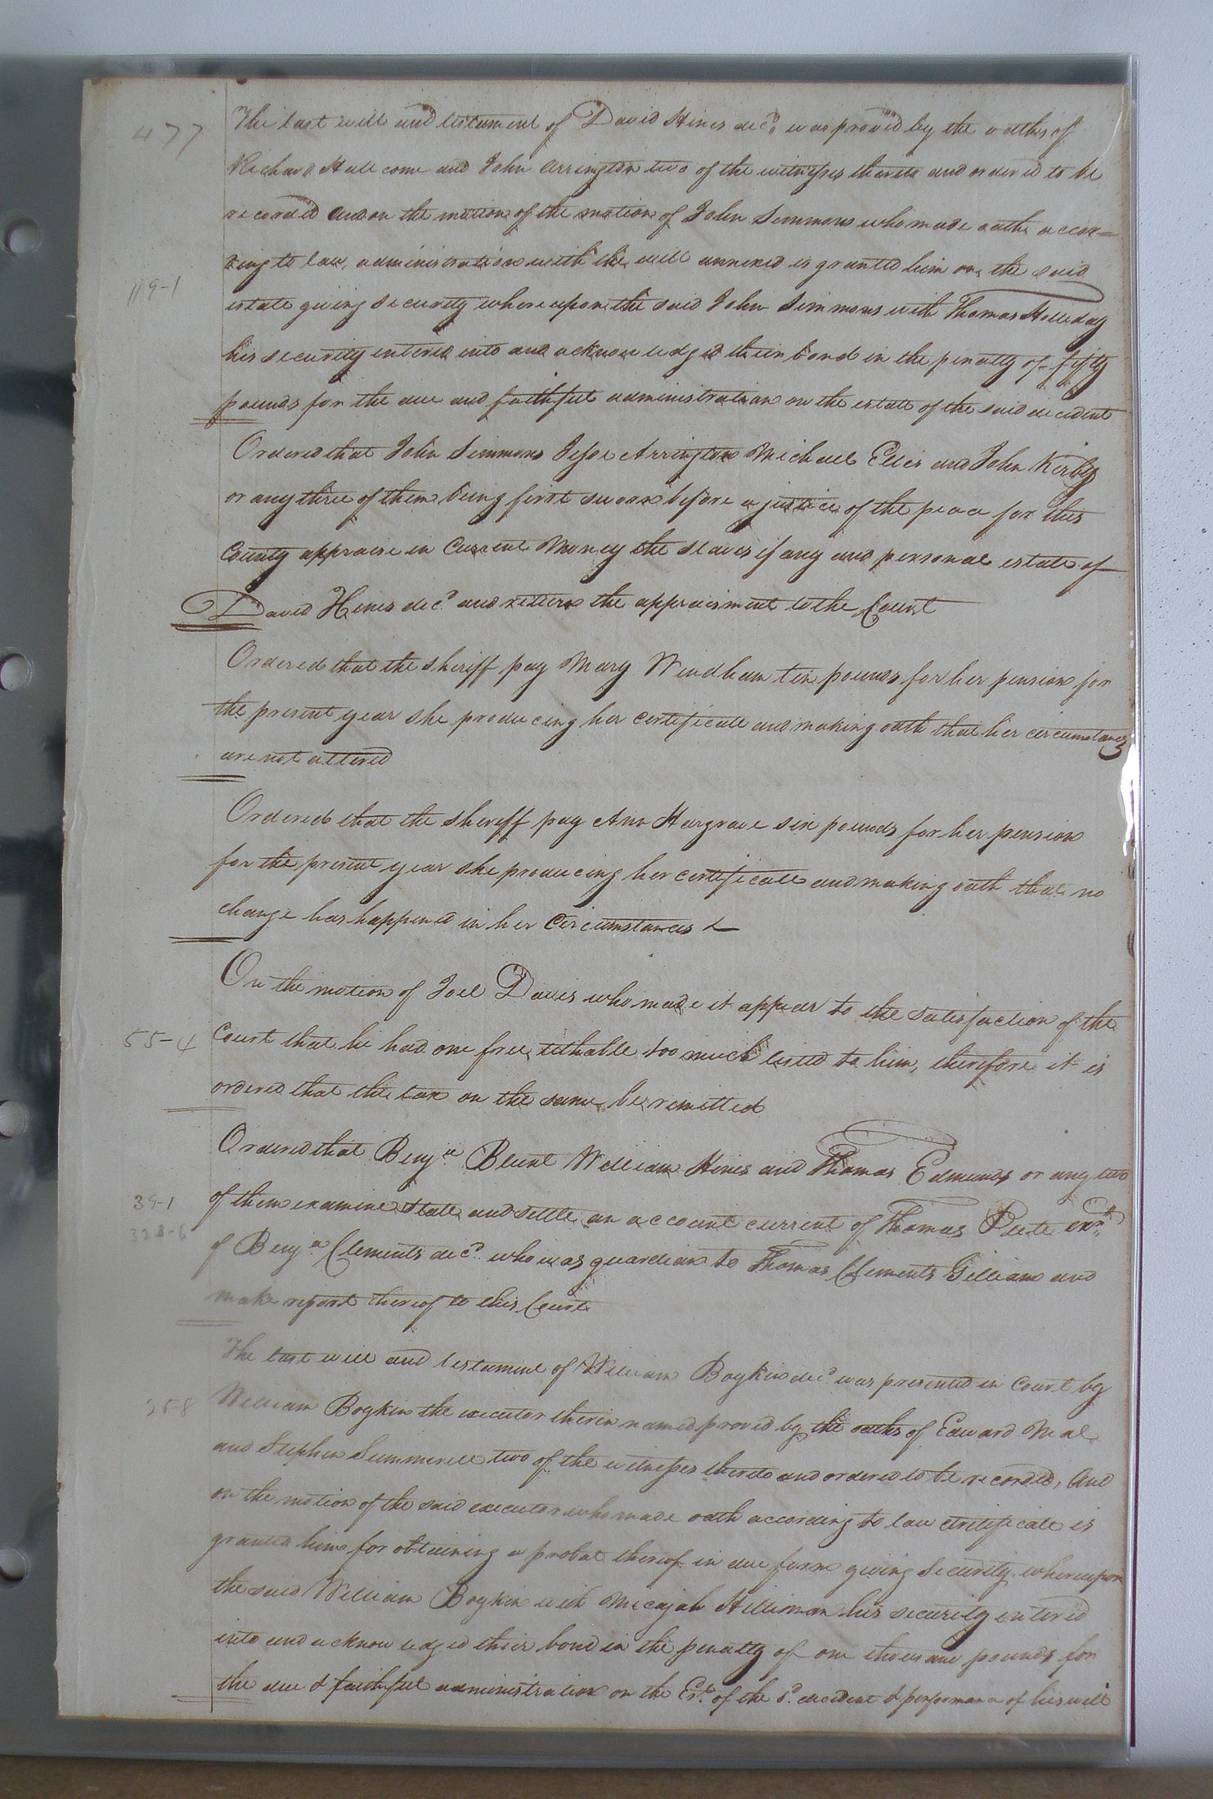 477
The last will and testament of David Hines decd. was proved by the oaths of
Richard Hall come and John Arrington two of the witnesses thereto and ordered to be
recorded and on the motion of the motion of John Simmons who made oath accor=
ding to law, administration with the will annexed is granted him on the said
119-1
estate giving security whereupon the said John Simmons with Thomas Holliday
his security entered into and acknowledged their bond in the penalty of fifty
pounds for the due and faithful administration on the estate of the said decedent
Ordered that John Simmons Jesse Arrington Michael Ellis and John Kirby
or any three of them being first sworn before a justice of the peace for this
County appraise in Current Money the slaves if any and personal estate of
David Hines decd. and return the appraisment to the Court
Ordered that the sheriff pay Mary Windham ten pounds for her pension for
the present year she producing her certificate and making oath that her circumstances
are not altered
Ordered that the sheriff pay Ann Hargrave six pounds for her pension
for the present year she producing her certificate and making oath that no
change has happened in her Circumstances
On the motion of Joel Davis who made it appear to the satisfaction of the
55-4
Court that he had one free tithable too much listed to him, therefore it is
ordered that the tax on the same be remitted
Ordered that Benja. Blunt William Hines and Thomas Edmunds or any two
39-1
of them examine state and settle an account current of Thomas Peete exr.
328-6
of Benja. Clements decd. who was guardian to Thomas Clements Gilliam and
make report thereof to this Court
The last will and testament of William Boykin decd. was presented in Court by
358
William Boykin the executor therein named proved by the oaths of Edward Neal
and Stephen Summerell two of the witnesses thereto and ordered to be recorded, And
on the motion of the said executor who made oath according to law certificate is
granted him for obtaining a probat thereof in due form giving security whereupon
the said William Boykin with Micajah Holliman his security entered
into and acknowledged their bond in the penalty of one thousand pounds for
the due & faithful administration on the Este. of the sd. decedent & performance of his will